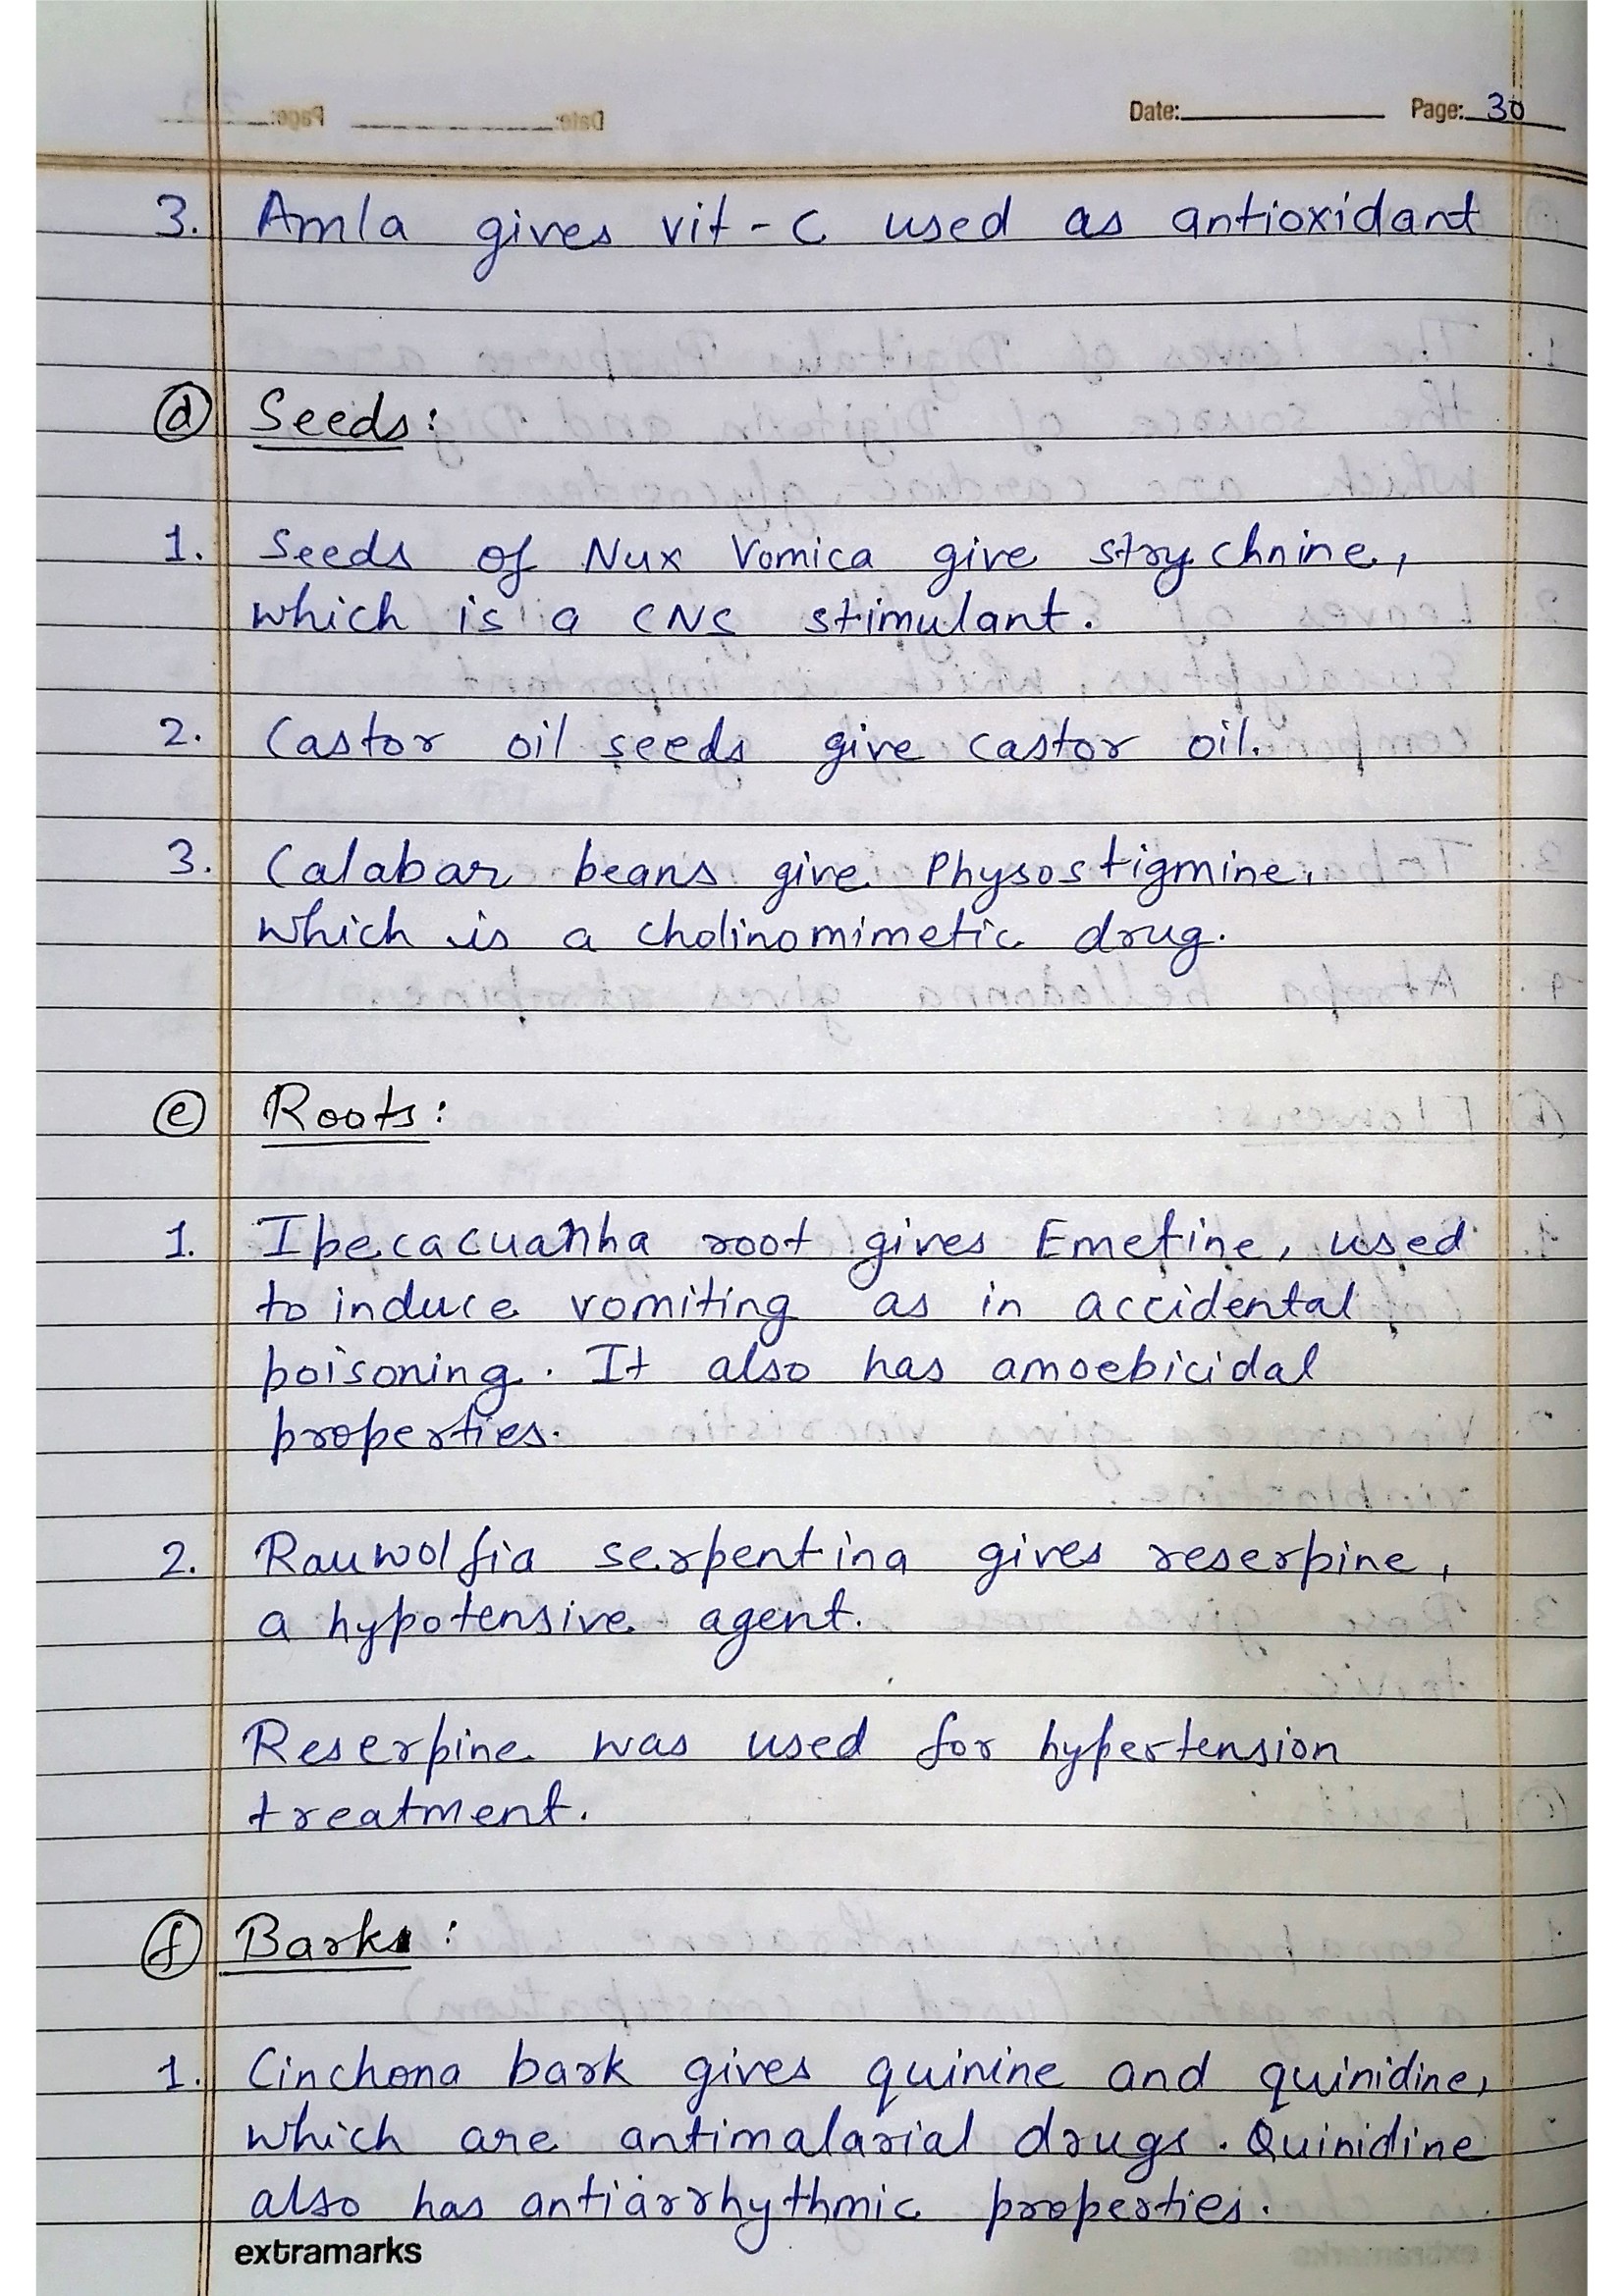 Date: Page: 30
3. Amla gives vit-C used as antioxidant
(d) Seeds:
1. Seeds of Nux Vomica give strychnine,
which is a CNS stimulant.
2. Castor oil seeds give castor oil.
3. Calabar beans give Physostigmine,
which is a cholinomimetic drug.
(e) Roots:
1. Ipecacuanha root gives Emetine, used
to induce vomiting as in accidental
poisoning. It also has amoebicidal
properties.
2. Rauwolfia serpentina gives reserpine,
a hypotensive agent.
Reserpine was used for hypertension
treatment.
(f) Barks:
1. Cinchona bark gives quinine and quinidine,
which are antimalarial drugs. Quinidine
also has antiarrhythmic properties.
extramarks